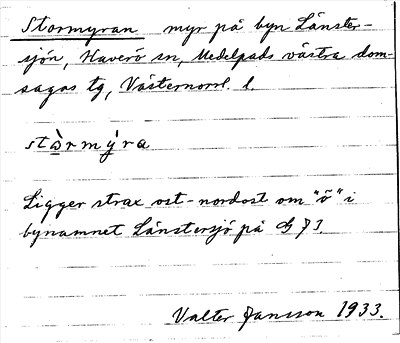 Stormyran myr på byn Länster-
sjön, Haverö sn, Medelpads västra dom-
sagas tg, Västernorrl. l.
stàrmy̍ra
Ligger strax ost-nordost om "ö" i
bynamnet Länstersjö på G 71.
Valter Jansson 1933.